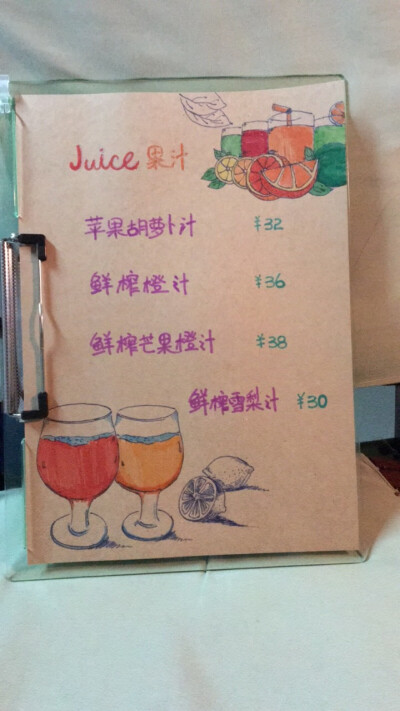 Juice 果汁
苹果胡萝卜汁 ¥32
鲜榨橙汁 ¥36
鲜榨芒果橙汁 ¥38
鲜榨雪梨汁 ¥30